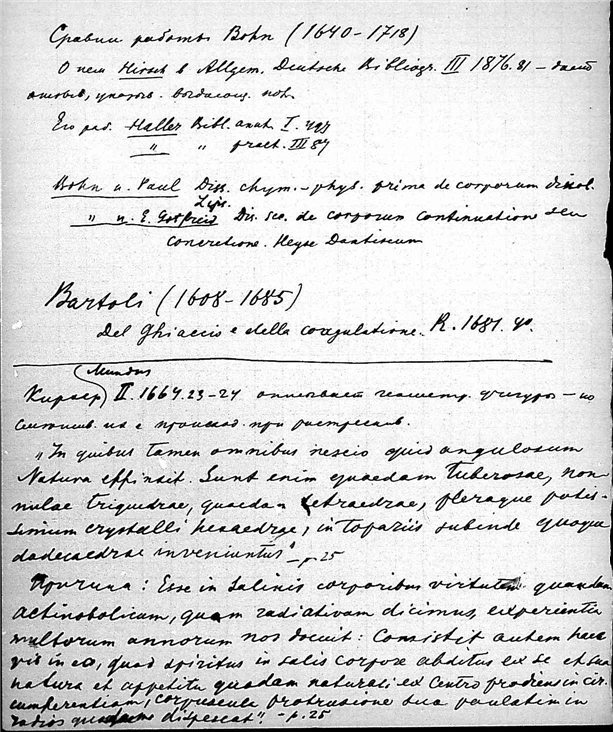 Сравни работы Bohn (1640-1718)
О нем Hirsch в Allgem. Deutsche Bibliogr. III 1876.81 – дает
Его раб. Haller Bibl. anat. I. 497
" " pract. III 87
Bohn u. Paul Diss. chym.-phys. prima de corporum dissol.
Lips.
" u. E. Gotfreid Dis. sco. de corporum continuatione seu
concretione. Heyse Dantiscum
Bartoli (1608-1685)
Del Ghiaccio e della coagulatione. R. 1681. 4°.
Mundus
Кирхер II. 1664.23-24 описывает геометр. фигуры – но
происход. при растресків.
"In quibus tamen omnibus nescio quid angulosum
Natura effinxit. Sunt enim quaedam tuberosae, non-
nulae triquedrae, quaedam tetraedrae, pleraque potis-
simum crystalli hexaedrae, in topariis subinde quoque
dodecaedrae inveniuntur" – p. 25
Причина: Esse in salinis corporibus virtutem quandam
actinobolicam, quam radiativam dicimus, experientia
multorum annorum nos docuit: Consistit autem haec
vis in eo, quod spiritus in salis corpore abditus ex se et sua
natura et appetitu quodam naturali ex centro prodiens in cir-
cumferentiam, corpuscula protrusione sua paulatim in
radios dispescat". – p. 25